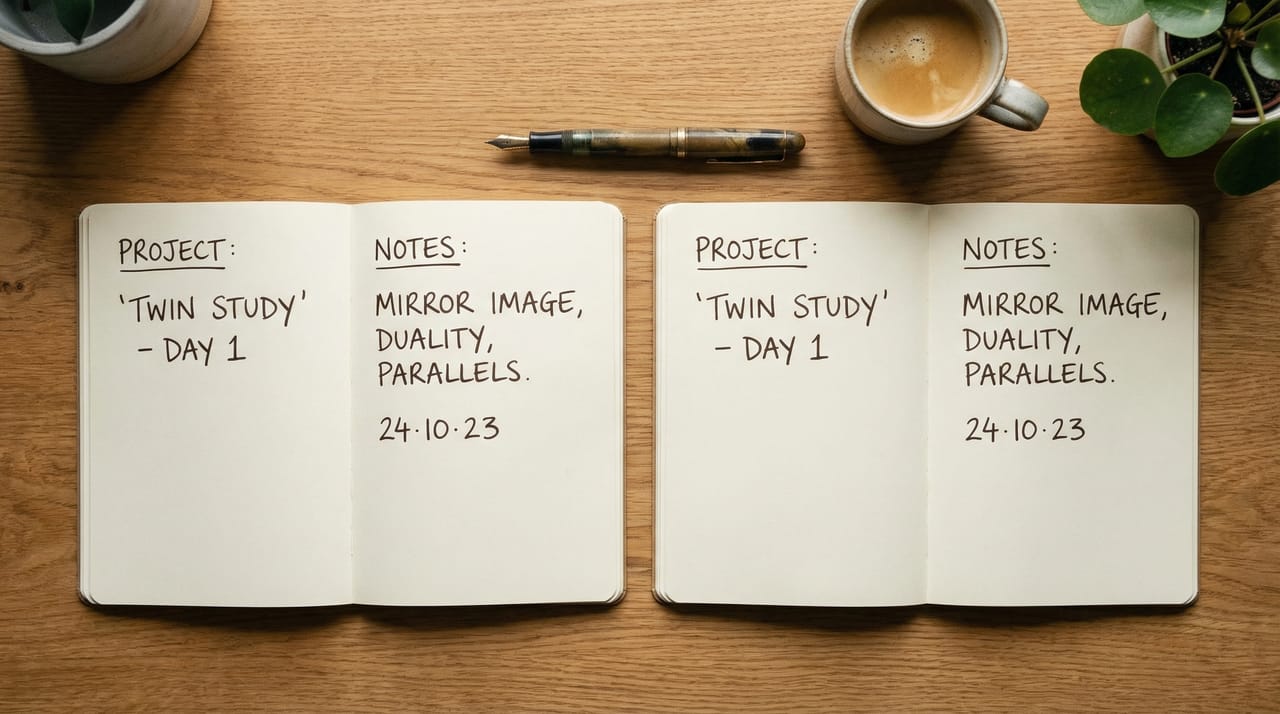 PROJECT:
'TWIN STUDY'
– DAY 1
NOTES:
MIRROR IMAGE,
DUALITY,
PARALLELS.
24·10·23
PROJECT:
'TWIN STUDY'
– DAY 1
NOTES:
MIRROR IMAGE,
DUALITY,
PARALLELS.
24·10·23